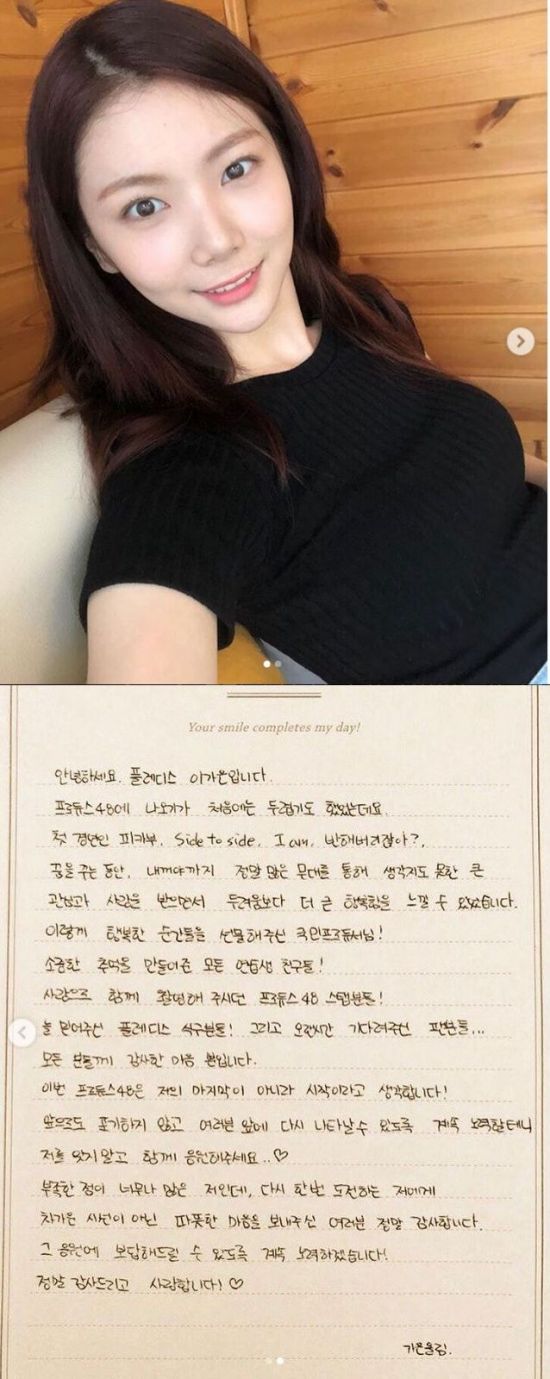 Your smile completes my day!
안녕하세요. 플레디스 이가은입니다.
프로듀스48에 나오기가 처음에는 두렵기도 했었는데요.
첫 경연인 피카부, Side to side, I am, 반해버리잖아?,
꿈을 꾸는 동안, 내꺼야까지 정말 많은 무대를 통해 생각지도 못한 큰
관심과 사랑을 받으면서 두려움보다 더 큰 행복함을 느낄 수 있었습니다.
이렇게 행복한 순간들을 선물해주신 국민프로듀서님!
소중한 추억을 만들어준 모든 연습생 친구들!
사랑으로 함께 촬영해 주시던 프로듀스48 스탭분들!
늘 믿어주신 플레디스 식구분들! 그리고 오랜시간 기다려주신 팬분들...
모든 분들께 감사한 마음 뿐입니다.
이번 프로듀스48은 저의 마지막이 아니라 시작이라고 생각합니다!
앞으로도 포기하지 않고 여러분 앞에 다시 나타날 수 있도록 계속 노력할테니
저를 잊지 말고 함께 응원해주세요..♡
부족한 점이 너무나 많은 저인데, 다시 한번 도전하는 저에게
차가운 시선이 아닌 따뜻한 마음을 보내주신 여러분 정말 감사합니다.
그 응원에 보답해드릴 수 있도록 계속 노력하겠습니다!
정말 감사드리고 사랑합니다!♡
가은올림.